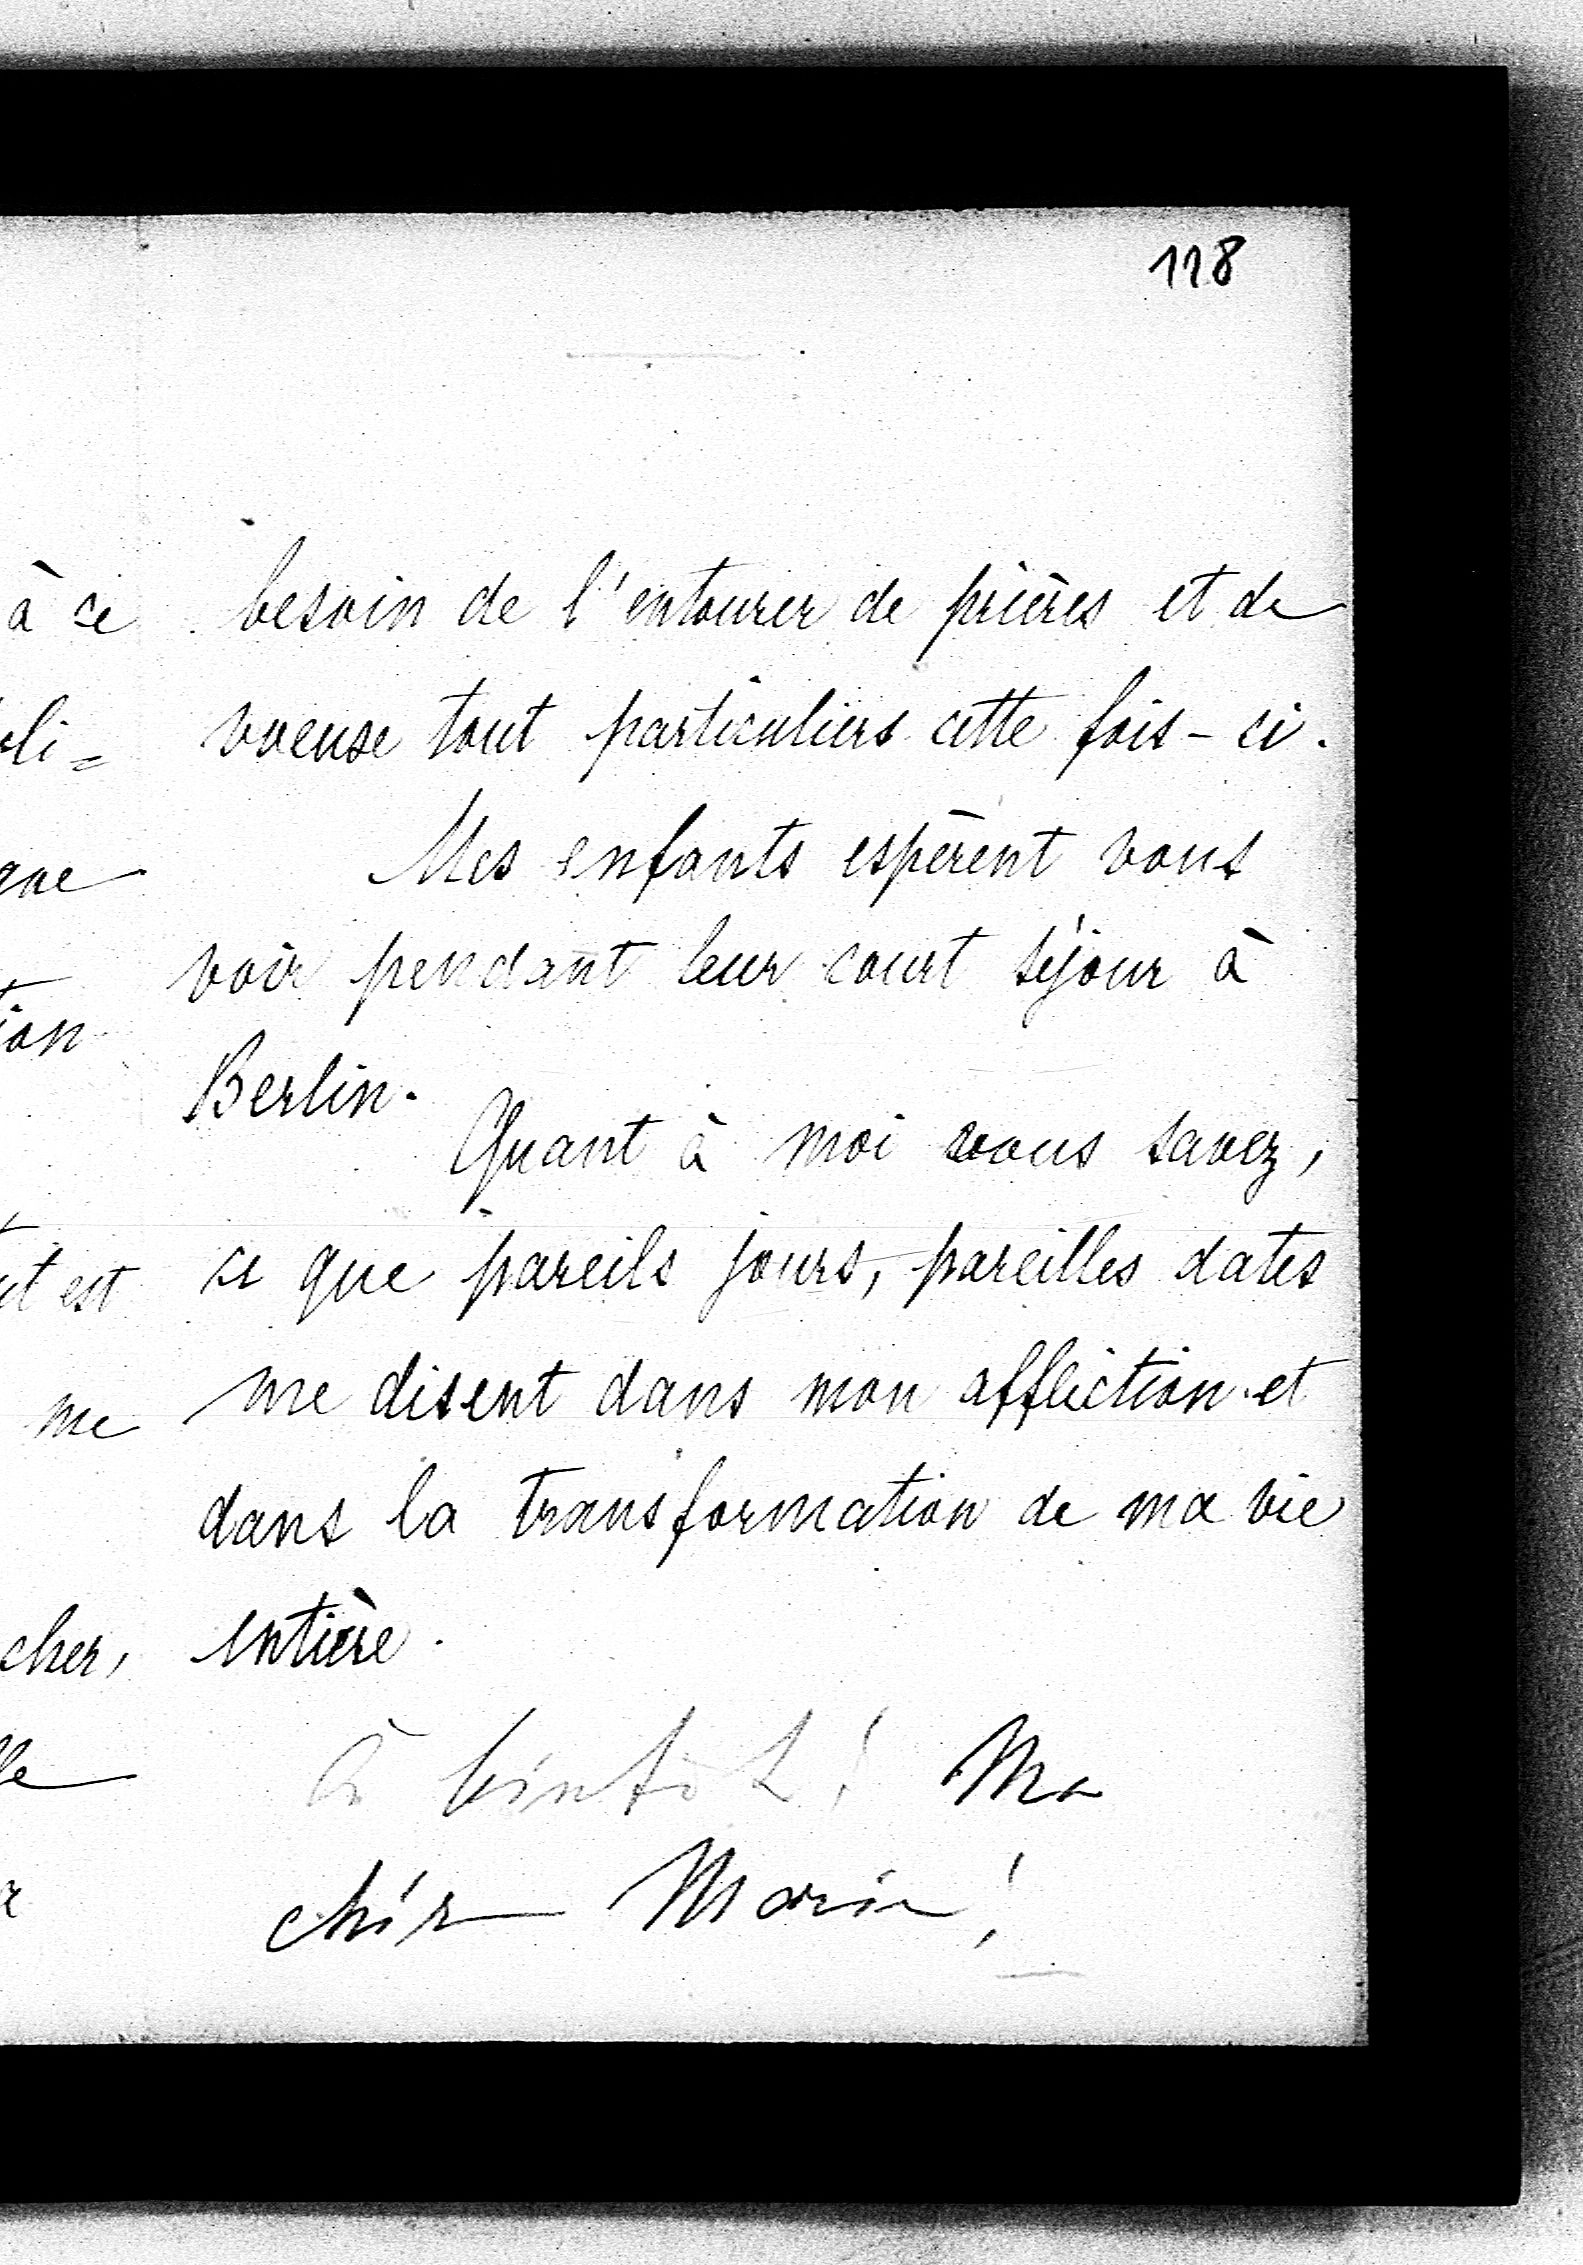 118
à ce
besoin de l'entourer de prières et de
voeuse tout particuliers cette fois-ci.
Mes enfants espèrent vous
voir pendant leur court séjour à
Berlin.
Quant à moi vous savez,
ce que pareils jours, pareilles dates
me disent dans mon affliction et
dans la transformation de ma vie
entière.
à bientôt! Ma
chèr Marie!
est
me
cher,